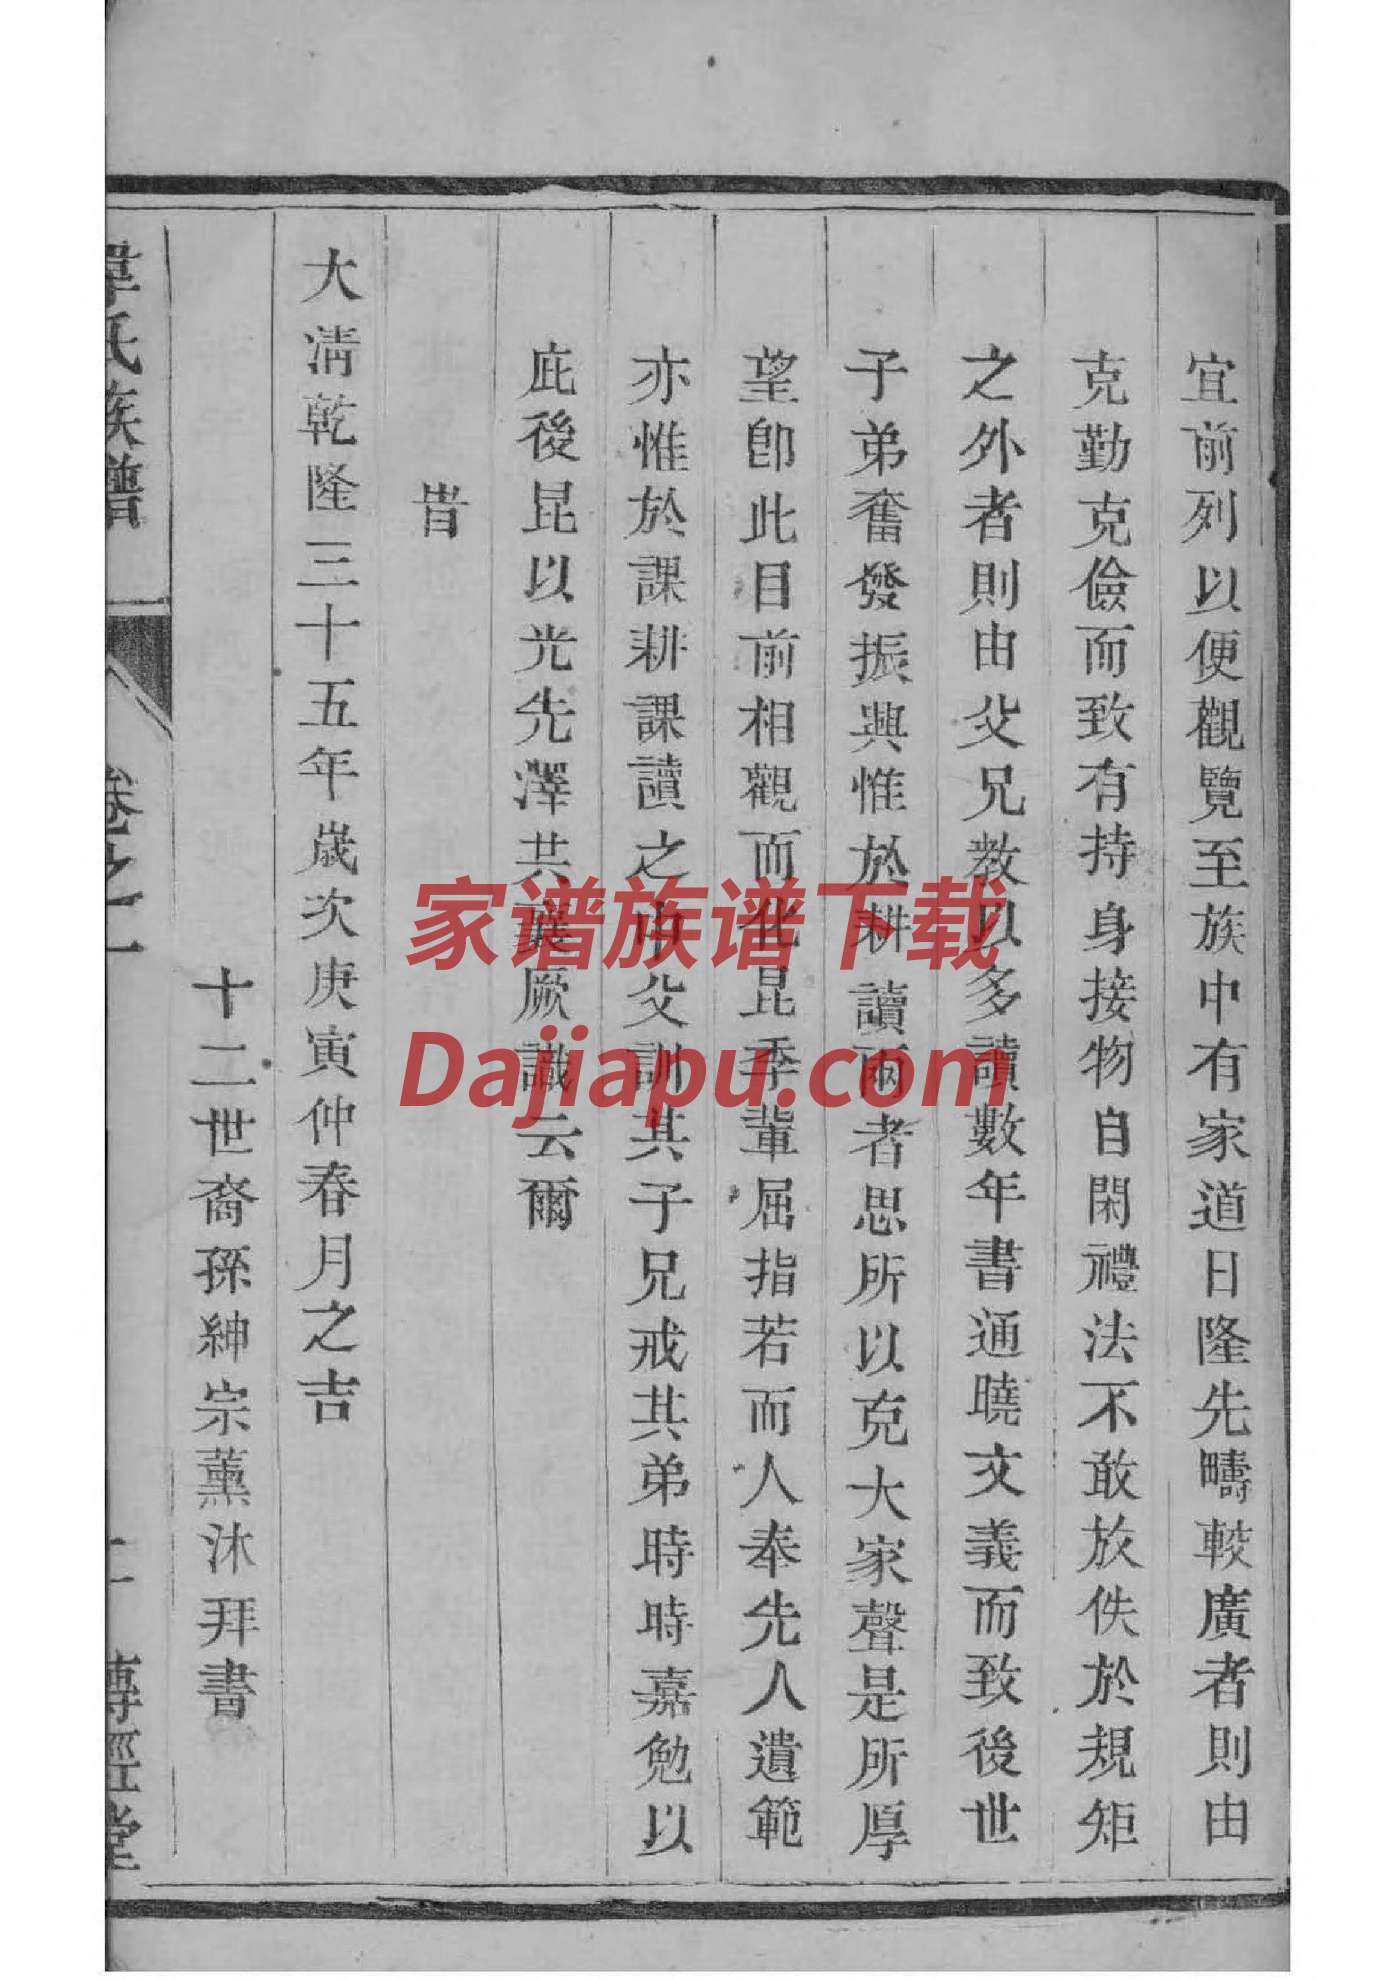 宜前列以便觀覽至族中有家道日隆先疇較廣者則由
克勤克儉而致有持身接物自閑禮法不敢放佚於規矩
之外者則由父兄教以多讀數年書通曉文義而致後世
子弟奮發振興惟於耕讀兩者思所以克大家聲是所厚
望卽此目前相觀而化昆季輩屈指若而人奉先人遺範
亦惟於課耕課讀之中父訓其子兄戒其弟時時嘉勉以
庇後昆以光先澤共襄厥識云爾
旹
大淸乾隆三十五年歲次庚寅仲春月之吉
十二世裔孫紳宗薰沐拜書
韋氏族譜
卷之一
二
傳經堂
家谱族谱下载
Dajiapu.com